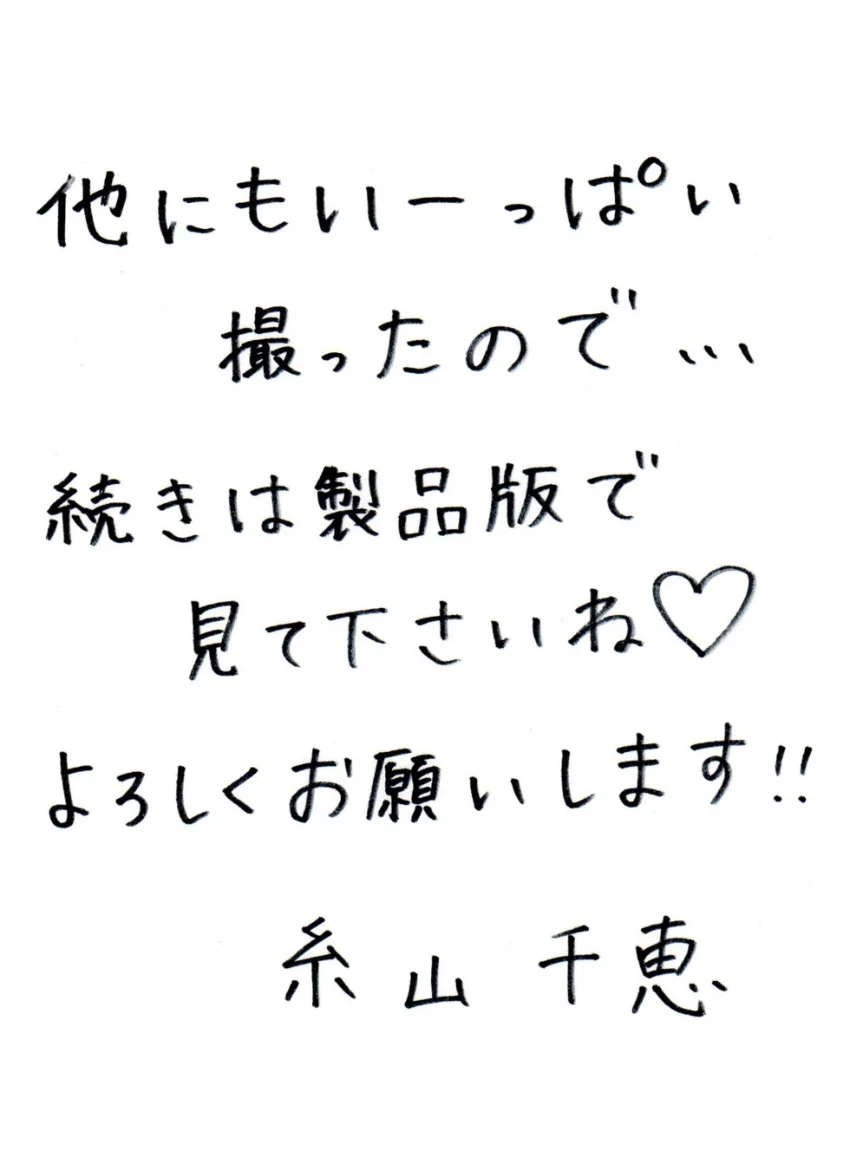 他にもいーっぱい
撮ったので...
続きは製品版で
見て下さいね♡
よろしくお願いします!!
糸山 千恵